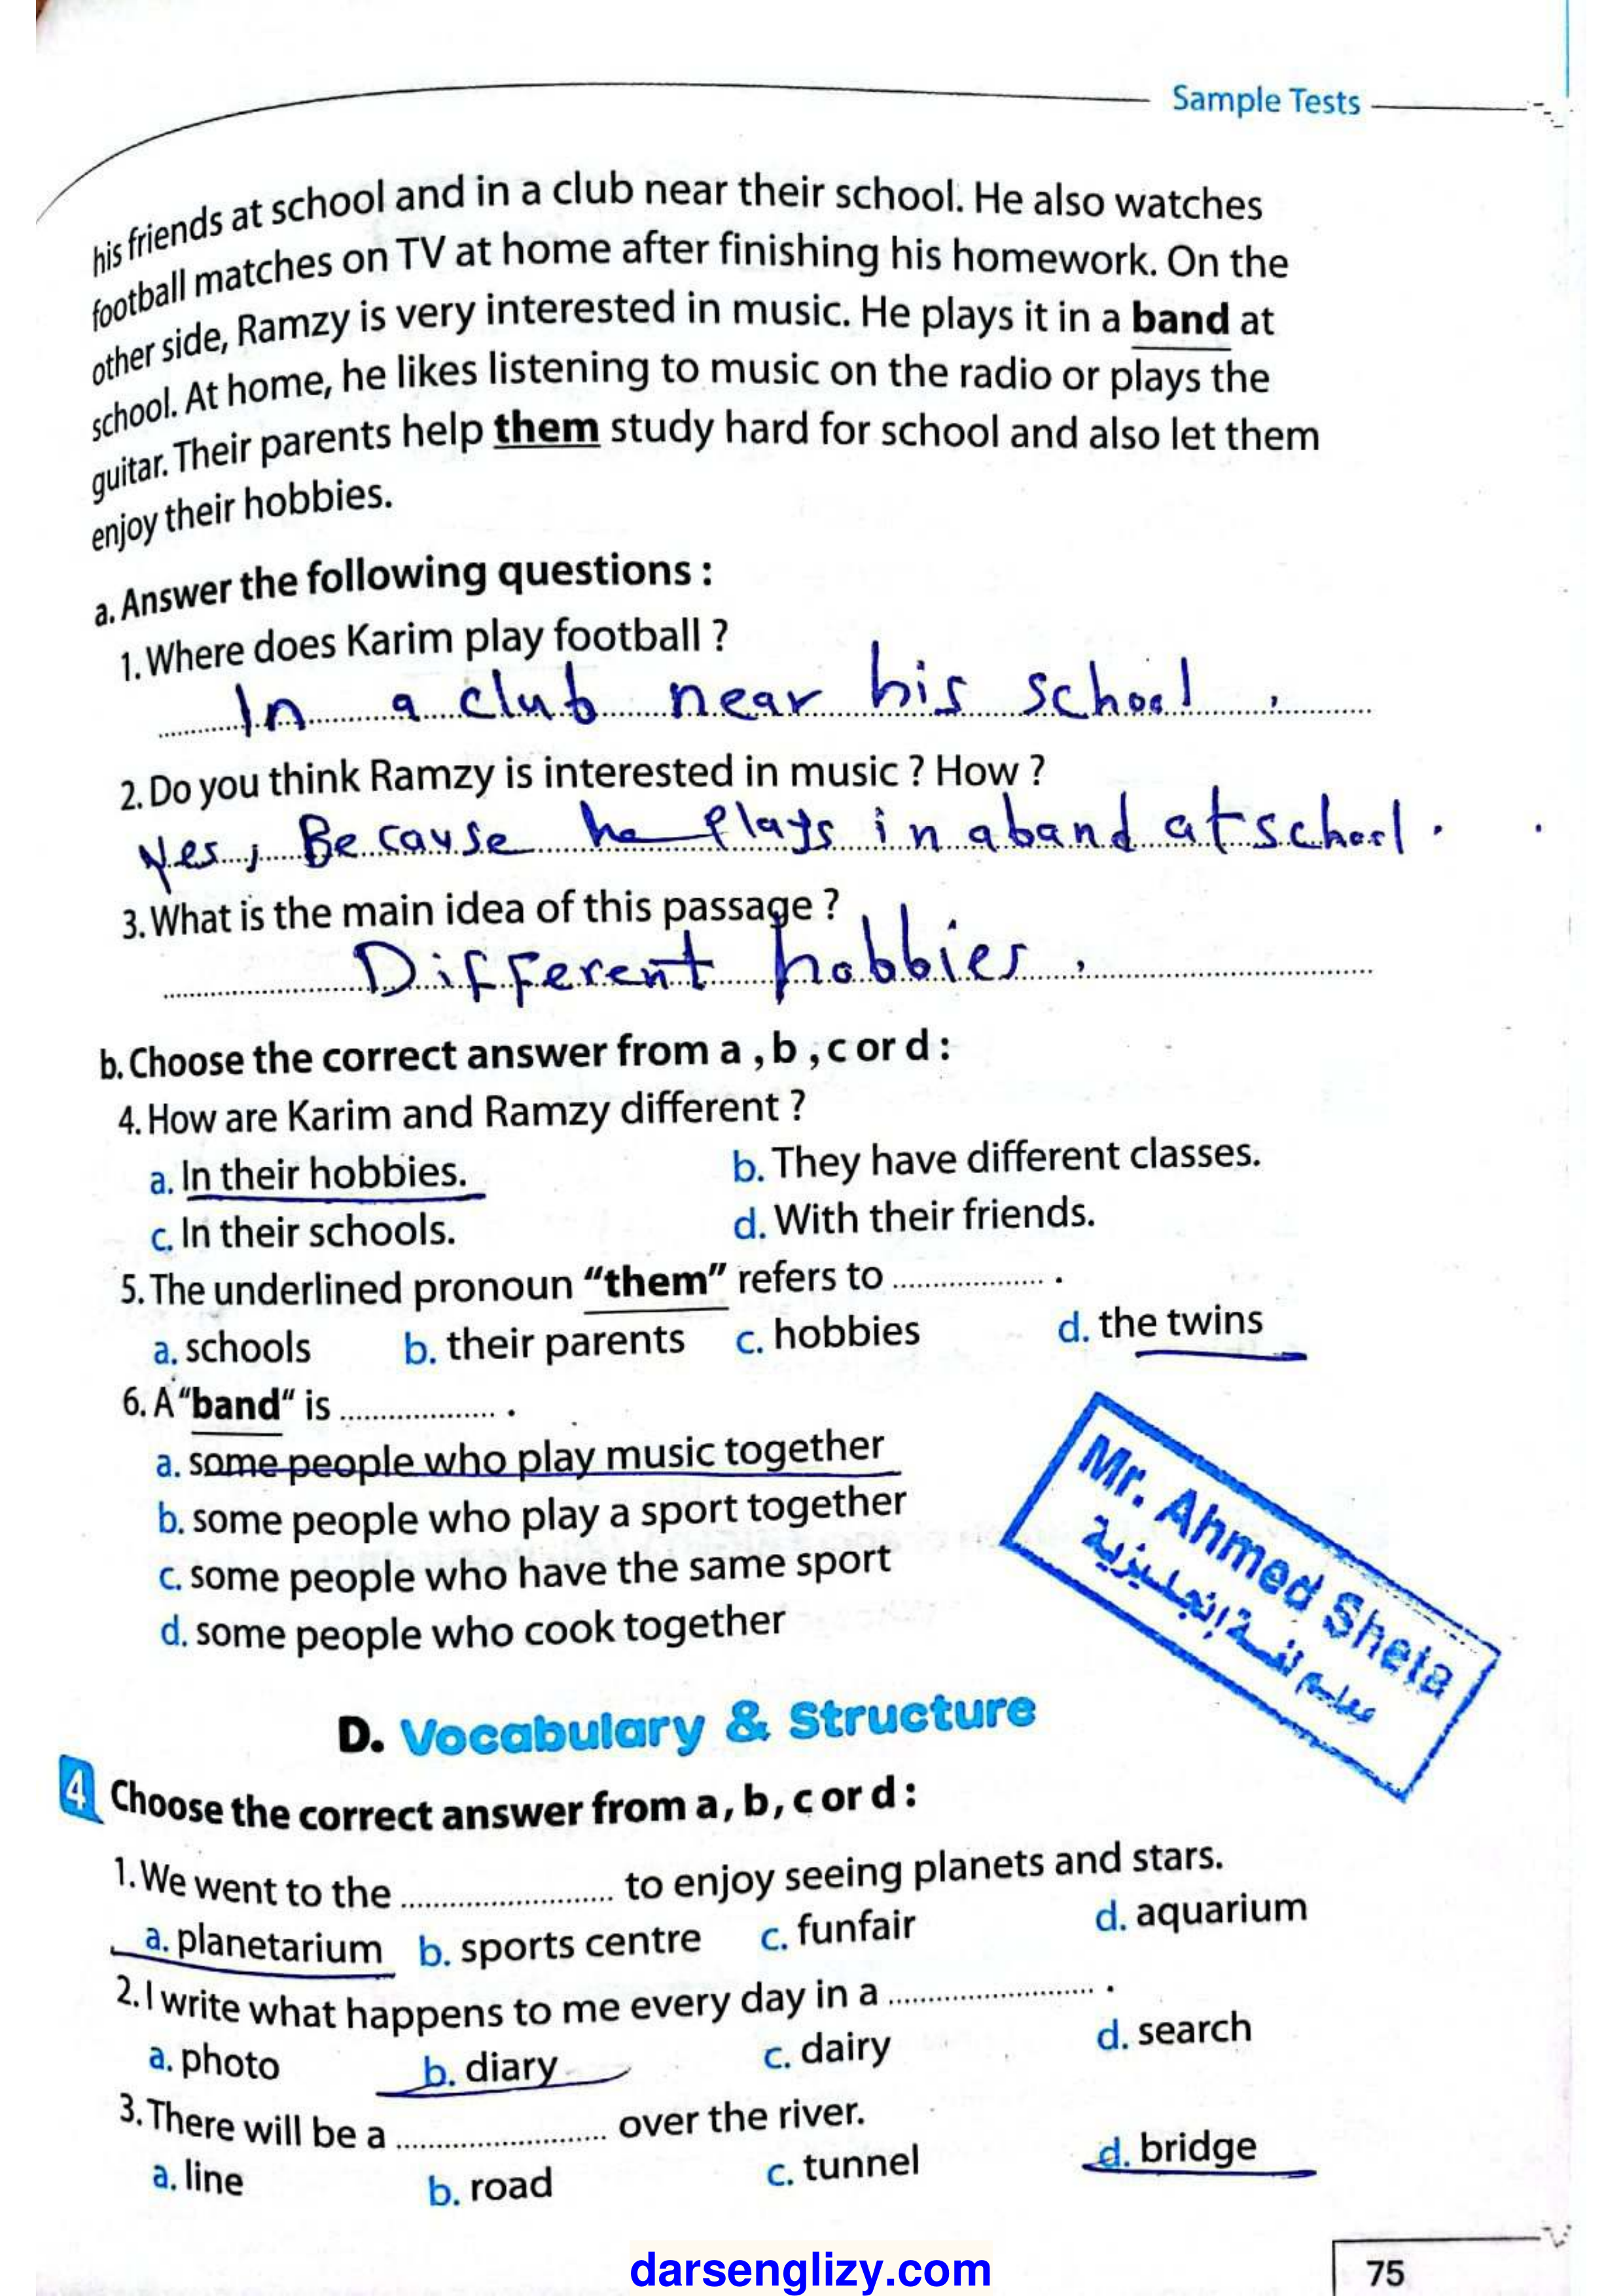 Sample Tests
his friends at school and in a club near their school. He also watches
football matches on TV at home after finishing his homework. On the
other side, Ramzy is very interested in music. He plays it in a band at
school. At home, he likes listening to music on the radio or plays the
guitar. Their parents help them study hard for school and also let them
enjoy their hobbies.
a. Answer the following questions :
1. Where does Karim play football ?
In a club near his school .
2. Do you think Ramzy is interested in music ? How ?
Yes, Because he plays in a band at school.
3. What is the main idea of this passage ?
Different hobbies .
b. Choose the correct answer from a , b , c or d :
4. How are Karim and Ramzy different ?
a. In their hobbies. b. They have different classes.
c. In their schools. d. With their friends.
5. The underlined pronoun “them” refers to .................... .
a. schools b. their parents c. hobbies d. the twins
6. A “band“ is .................... .
a. some people who play music together
b. some people who play a sport together
c. some people who have the same sport
d. some people who cook together
Mr. Ahmed Sheta
معلم اللغة الإنجليزية
D. Vocabulary & Structure
4 Choose the correct answer from a , b , c or d :
1. We went to the .................... to enjoy seeing planets and stars.
a. planetarium b. sports centre c. funfair d. aquarium
2. I write what happens to me every day in a .................... .
a. photo b. diary c. dairy d. search
3. There will be a .................... over the river.
a. line b. road c. tunnel d. bridge
darsenglizy.com
75